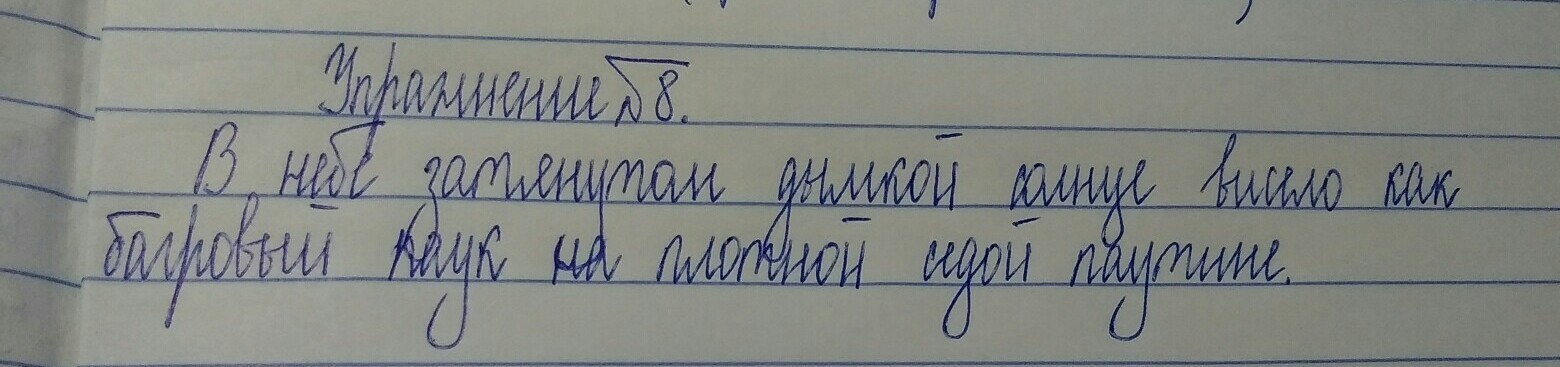 Упражнение №8.
В небе затянутом дымкой солнце висело как
багровый паук на плотной седой паутине.